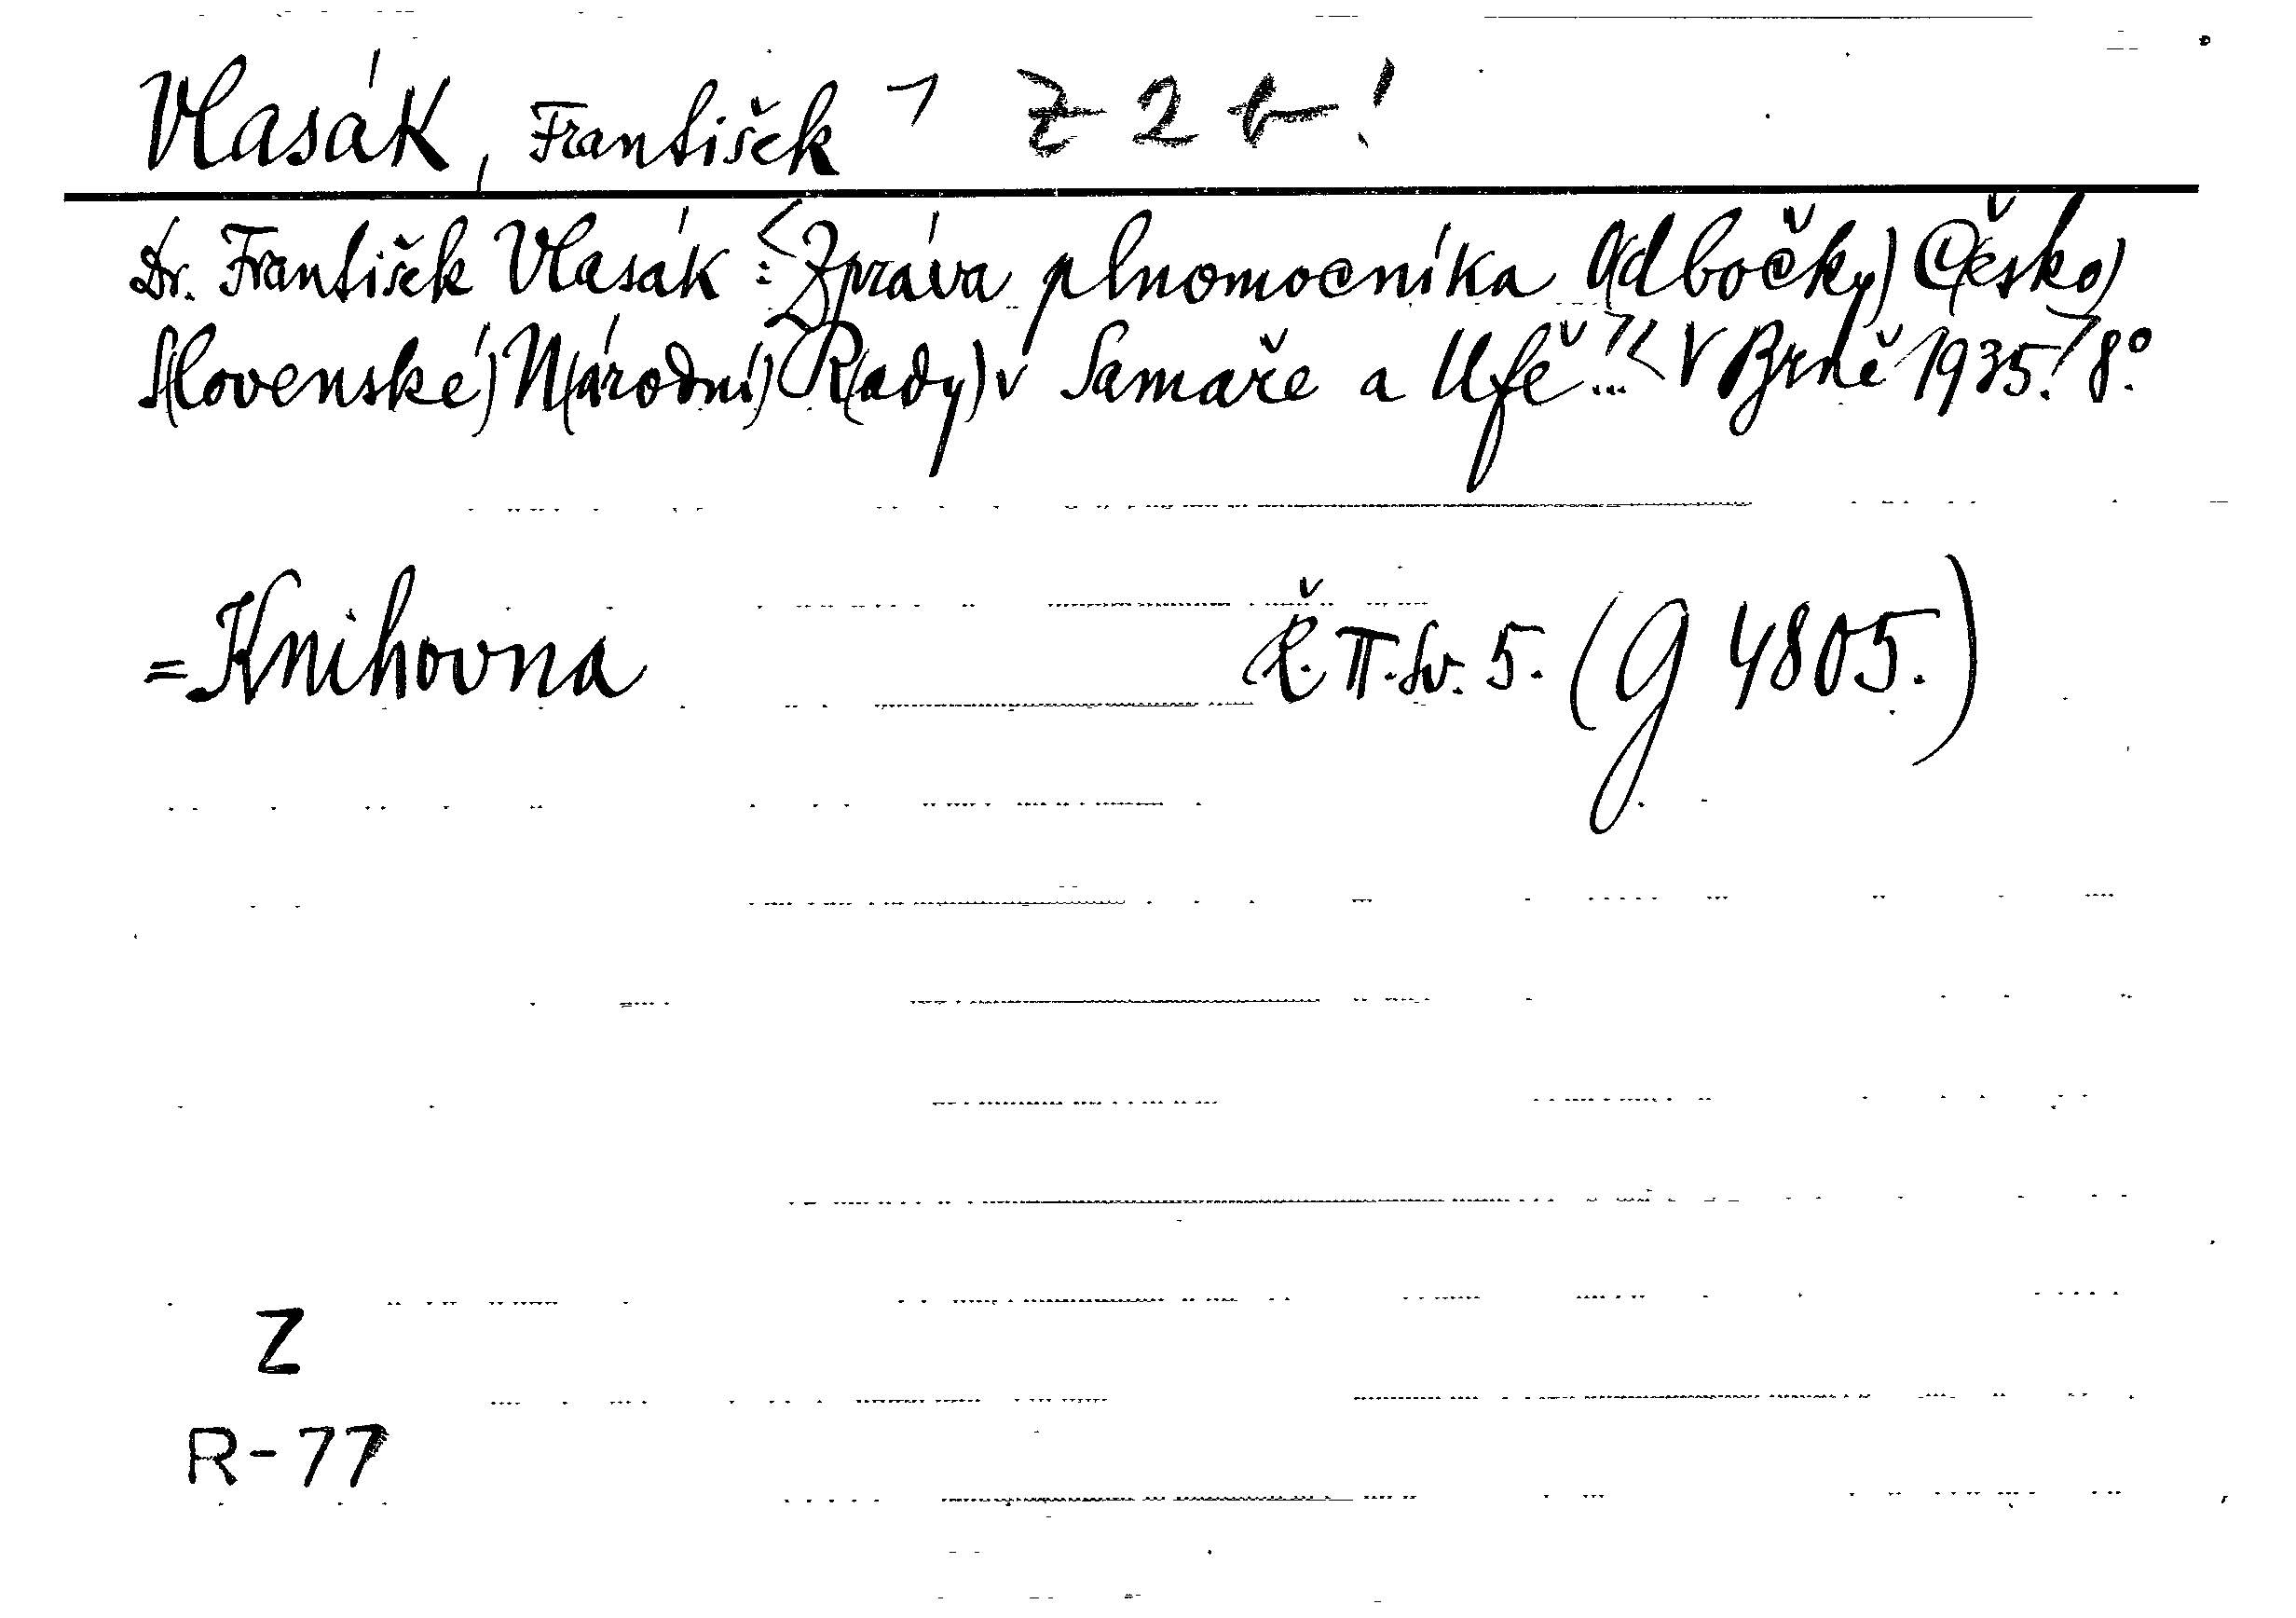 Vlasák, František ¬ Z 2 t !
Dr. František Vlasák : <Zpráva plnomocníka O(dbočky) Č(esko)
S(lovenské) N(árodní) R(ady) v Samaře a Ufě ...> <V Brně 1935.> 8°.
=Knihovna Ř. II. Sv. 5. (G 4805.)
Z
R-77